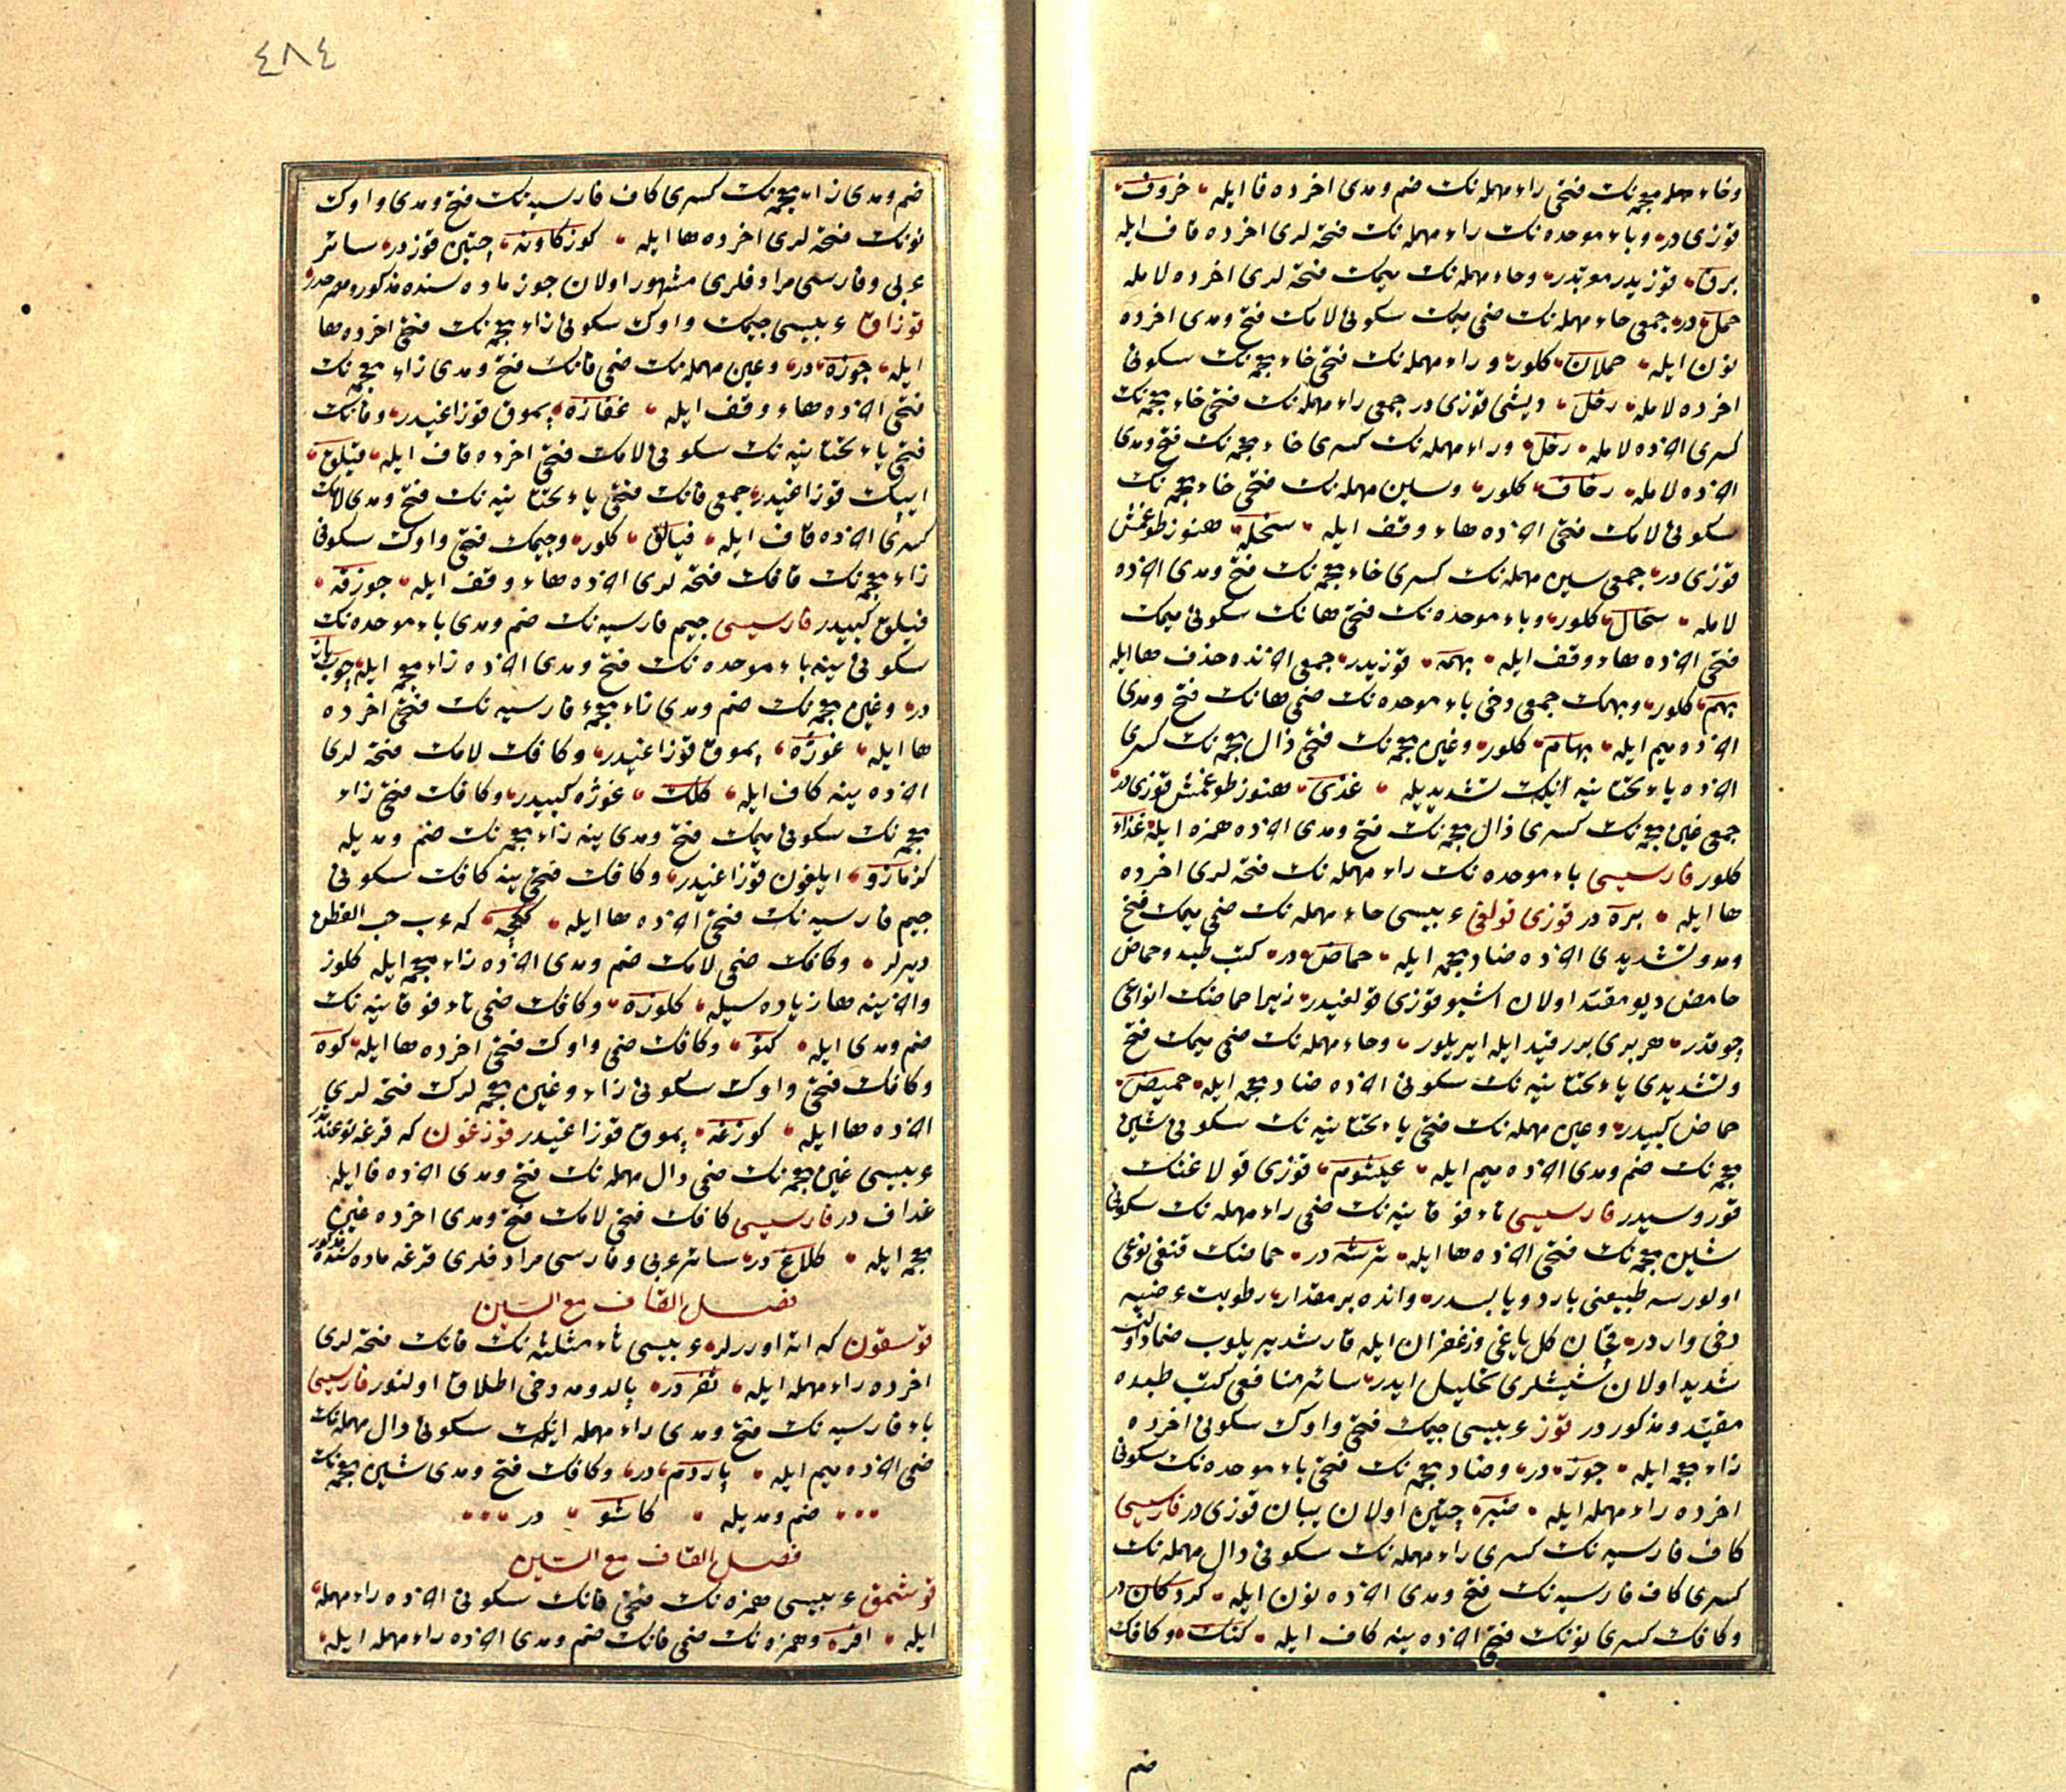 وخاء معجمه‌نك فتحى راء مهمله‌نك ضم ومدى اخرده فا ايله خروف
قوزى در وباء موحده‌نك راء مهمله‌نك فتحه‌لرى اخرده قاف ايله
برق قوزيدر معربدر وحاء مهمله‌نك ميمك فتحه‌لرى اخرده لامله
حمل در جمعى حاء مهمله‌نك ضمى ميمك سكونى لامك فتح ومدى اخرده
نون ايله حملان كلور وراء مهمله‌نك فتحى خاء معجمه‌نك سكونى
اخرده لامله رخل ديشى قوزى در جمعى راء مهمله‌نك فتحى خاء معجمه‌نك
كسرى اخرده لامله رخل وراء مهمله‌نك كسرى خاء معجمه‌نك فتح ومدى
اخرده لامله رخال كلور وسين مهمله‌نك فتحى خاء معجمه‌نك
سكونى لامك فتحى اخرده هاء وقف ايله سخله هنوز طوغمش
قوزى در جمعى سين مهمله‌نك كسرى خاء معجمه‌نك فتح ومدى اخرده
لامله سخال كلور وباء موحده‌نك فتحى هانك سكونى ميمك
فتحى اخرده هاء وقف ايله بهمه قوزيدر جمعى اخرندن حذف ها ايله
بهم كلور وبهمك جمعى دخى باء موحده‌نك ضمى هانك فتح ومدى
اخرده ميم ايله بهام كلور وغين معجمه‌نك فتحى ذال معجمه‌نك كسرى
اخرده ياء تحتانيه‌نك تشديديله غذى هنوز طوغمش قوزى در
جمعى غين معجمه‌نك كسرى ذال معجمه‌نك فتح ومدى اخرده همزه ايله غذاء
كلور فارسيسى باء موحده‌نك راء مهمله‌نك فتحه‌لرى اخرده
ها ايله بره در قوزى قولاغى عربيسى حاء مهمله‌نك ضمى ميمك فتح
ومد وتشديدى اخرده ضاد معجمه ايله حماض در كتب طبده حماض
حامض ديو مقيد اولان اشبو قوزى قولاغيدر زيرا حماضك انواعى
چوقدر هر برى برر قيد ايله ايريلور وحاء مهمله‌نك ضمى ميمك فتح
وتشديدى ياء تحتانيه‌نك سكونى اخرده ضاد معجمه ايله حميض
حماض كبيدر وعين مهمله‌نك فتحى ياء تحتانيه‌نك سكونى شين
معجمه‌نك ضم ومدى اخرده ميم ايله عيشوم قوزى قولاغنك
قوروسيدر فارسيسى تاء فوقانيه‌نك ضمى راء مهمله‌نك سكونى
شين معجمه‌نك فتحى اخرده ها ايله ترشه در حماضك قنغى نوعى
اولورسه طبيعتى بارد ويابسدر واندە بر مقدار رطوبت عرضيه
دخى واردر قچان كل ياغى وزعفران ايله قارشديريلوب ضماد اولنه
شديد اولان شيشلرى تحليل ايدر سائر منافعى كتب طبده
مقيد ومذكور در قوز عربيسى جيمك فتحى واوك سكونى اخرده
زاء معجمه ايله جوز در وضاد معجمه‌نك فتحى باء موحده‌نك سكونى
اخرده راء مهمله ايله ضبر چتين اولان يبان قوزى در فارسيسى
كاف فارسيه‌نك كسرى راء مهمله‌نك سكونى دال مهمله‌نك
كسرى كاف فارسيه‌نك فتح ومدى اخرده نون ايله كردكان در
وكافك كسرى نونك فتحى اخرده ينه كاف ايله كنك وكافك
ضم
٤٨٤
ضم ومدى زاء معجمه‌نك كسرى كاف فارسيه‌نك فتح ومدى واوك
نونك فتحه‌لرى اخرده ها ايله كوزكاونه چتين قوزدر سائر
عربى وفارسى مرادفلرى مشهور اولان جوز ماده‌سنده مذكور ومصرحدر
قوزاق عربيسى جيمك واوك سكونى زاء معجمه‌نك فتحى اخرده ها
ايله جوزه در وعين مهمله‌نك ضمى فانك فتح ومدى زاء معجمه‌نك
فتحى اخرده هاء وقف ايله عفازه پموق قوزاغيدر وفانك
فتحى ياء تحتانيه‌نك سكونى لامك فتحى اخرده قاف ايله فيلق
ايپك قوزاغيدر جمعى فانك فتحى ياء تحتانيه‌نك فتح ومدى لامك
كسرى اخرده قاف ايله فيالق كلور وجيمك فتحى واوك سكونى
زاء معجمه‌نك قافك فتحه‌لرى اخرده هاء وقف ايله جوزقه
فيلق كبيدر فارسيسى جيم فارسيه‌نك ضم ومدى باء موحده‌نك
سكونى ينه باء موحده‌نك فتح ومدى اخرده زاء معجمه ايله چوبباز
در وغين معجمه‌نك ضم ومدى زاء معجمه فارسيه‌نك فتحى اخرده
ها ايله غوژه پموق قوزاغيدر وكافك لامك فتحه‌لرى
اخرده ينه كاف ايله كلك غوژه كبيدر وكافك فتحى زاء
معجمه‌نك سكونى ميمك فتح ومدى ينه زاء معجمه‌نك ضم ومديله
كزمازو ايلغون قوزاغيدر وكافك فتحى ينه كافك سكونى
جيم فارسيه‌نك فتحى اخرده ها ايله ككچه كه عرب حب القطن
ديرلر وكافك ضمى لامك ضم ومدى اخرده زاء معجمه ايله كلوز
واخرينه ها زياده‌سيله كلوزه وكافك ضمى تاء فوقانيه‌نك
ضم ومدى ايله كتو وكافك ضمى واوك فتحى اخرده ها ايله كوه
وكافك فتحى واوك سكونى زاء وغين معجمه‌لرك فتحه‌لرى
اخرده ها ايله كوزغه پموق قوزاغيدر قوزغون كه قرغه نوعندندر
عربيسى غين معجمه‌نك ضمى دال مهمله‌نك فتح ومدى اخرده فا ايله
غداف در فارسيسى كافك فتحى لامك فتح ومدى اخرده غين
معجمه ايله كلاغ در سائر عربى وفارسى مرادفلرى قرغه ماده‌سنده مذكور
فصل القاف مع السين
قوسقون كه اته اورلر عربيسى ثاء مثلثه‌نك فانك فتحه‌لرى
اخرده راء مهمله ايله ثفر در پالدومه دخى اطلاق اولنور فارسيسى
باء فارسيه‌نك فتح ومدى راء مهمله‌نك سكونى دال مهمله‌نك
ضمى اخرده ميم ايله پاردم در وكافك فتح ومدى شين معجمه‌نك
ضم ومديله كاشو در
فصل القاف مع الشين
قوشمق عربيسى همزه‌نك فتحى فانك سكونى اخرده راء مهمله
ايله افر وهمزه‌نك ضمى فانك ضم ومدى اخرده راء مهمله ايله